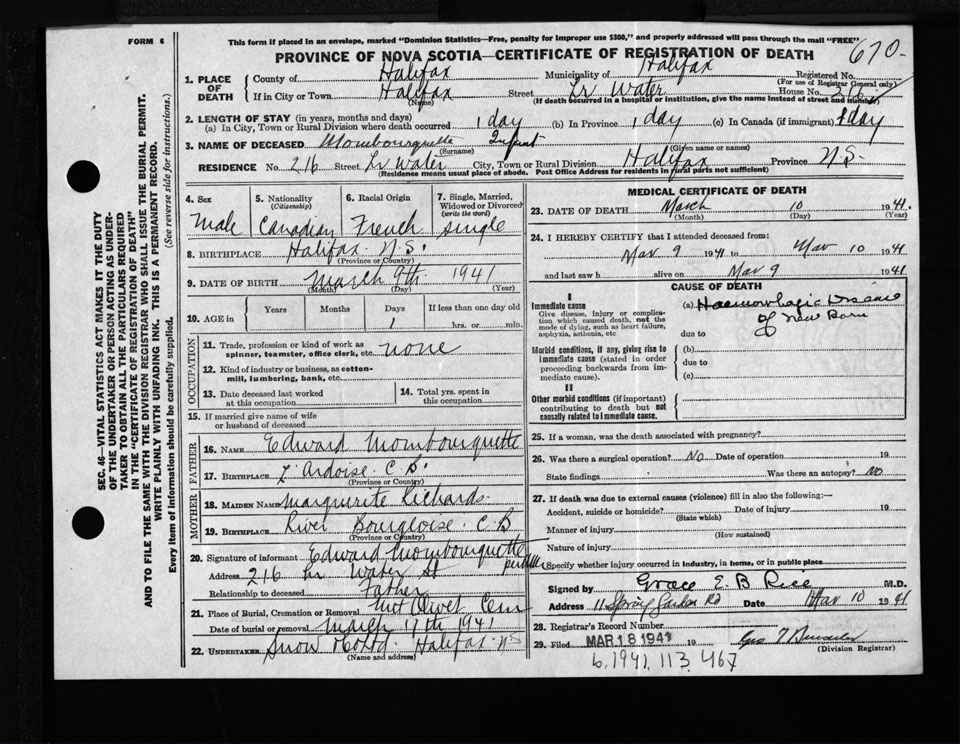 FORM 6
This form if placed in an envelope, marked "Dominion Statistics—Free, penalty for improper use $300," and properly addressed will pass through the mail "FREE"
PROVINCE OF NOVA SCOTIA—CERTIFICATE OF REGISTRATION OF DEATH
670-
1. PLACE OF DEATH
County of Halifax Municipality of Halifax Registered No.
(For use of Registrar General only)
If in City or Town Halifax Street Lr Water House No. 216
(Name) (If death occurred in a hospital or institution, give the name instead of street and number)
2. LENGTH OF STAY (in years, months and days)
(a) In City, Town or Rural Division where death occurred 1 day (b) In Province 1 day (c) In Canada (if immigrant) 1 day
3. NAME OF DECEASED Mombourquette Infant
(Surname) (Given name or names)
RESIDENCE No. 216 Street Lr Water City, Town or Rural Division Halifax Province N.S.
(Residence means usual place of abode. Post Office Address for residents in rural parts not sufficient)
4. Sex Male
5. Nationality (Citizenship) Canadian
6. Racial Origin French
7. Single, Married, Widowed or Divorced (write the word) Single
8. BIRTHPLACE Halifax N.S.
(Province or Country)
9. DATE OF BIRTH March 9th 1941
(Month) (Day) (Year)
10. AGE in Years Months Days If less than one day old
1 hrs. or min.
OCCUPATION
11. Trade, profession or kind of work as spinner, teamster, office clerk, etc. none
12. Kind of industry or business, as cotton-mill, lumbering, bank, etc.
13. Date deceased last worked at this occupation
14. Total yrs. spent in this occupation
15. If married give name of wife or husband of deceased
FATHER
16. Name Edward Mombourquette
17. Birthplace L'Ardoise C.B.
(Province or Country)
MOTHER
18. Maiden Name Marguerite Richards
19. Birthplace River Bourgeoise C.B
(Province or Country)
20. Signature of informant Edward Mombourquette
Address 216 Lr Water St
Relationship to deceased Father
21. Place of Burial, Cremation or Removal Mt Olivet Cem
Date of burial or removal March 17th 1941
22. UNDERTAKER Snow Halifax NS
(Name and address)
MEDICAL CERTIFICATE OF DEATH
23. DATE OF DEATH March 10 1941.
(Month) (Day) (Year)
24. I HEREBY CERTIFY that I attended deceased from:
Mar 9 1941 to Mar 10 1941
and last saw h alive on Mar 9 1941
CAUSE OF DEATH
I
Immediate cause
Give disease, injury or complication which caused death, not the mode of dying, such as heart failure, asphyxia, asthenia, etc
(a) Haemorrhagic Disease of New Born
due to
Morbid conditions, if any, giving rise to immediate cause (stated in order proceeding backwards from immediate cause).
(b)
due to
(c)
II
Other morbid conditions (if important) contributing to death but not causally related to immediate cause.
25. If a woman, was the death associated with pregnancy?
26. Was there a surgical operation? No Date of operation 19
State findings Was there an autopsy? No
27. If death was due to external causes (violence) fill in also the following:—
Accident, suicide or homicide? Date of injury 19
(State which)
Manner of injury
(How sustained)
Nature of injury
Specify whether injury occurred in industry, in home, or in public place
Signed by Grace E. B Rice M.D.
Address 11 Spring Garden Rd Date Mar 10 1941
28. Registrar's Record Number
29. Filed MAR 18 1941 19
(Division Registrar)
6.1941.113.467
SEC. 46—VITAL STATISTICS ACT MAKES IT THE DUTY
OF THE UNDERTAKER OR PERSON ACTING AS UNDERTAKER TO OBTAIN ALL THE PARTICULARS REQUIRED
IN THE "CERTIFICATE OF REGISTRATION OF DEATH"
AND TO FILE THE SAME WITH THE DIVISION REGISTRAR WHO SHALL ISSUE THE BURIAL PERMIT.
WRITE PLAINLY WITH UNFADING INK. THIS IS A PERMANENT RECORD.
Every item of information should be carefully supplied. (See reverse side for instructions.)